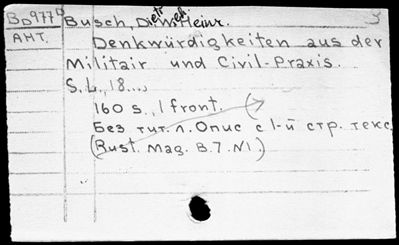 BD977D Busch, Dietr. Heinr.
АНТ. Denkwürdigkeiten aus der
Militair und Civil-Praxis.
S.L., 18...,
160 s., 1 front.
Без тит. л. Опис с 1-й стр. текс
(Rust. Mag. B.7. N1.)